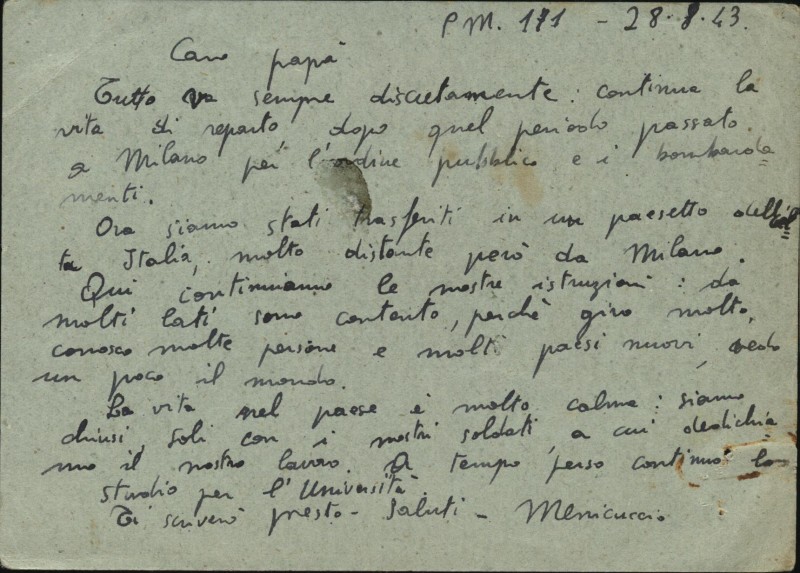 P.M. 171 - 28.8.43.
Caro papà
Tutto va sempre discretamente: continua la
vita di reparto dopo quel periodo passato
a Milano per l'ordine pubblico e i bombarda=
menti.
Ora siamo stati trasferiti in un paesetto dell'al=
ta Italia, molto distante però da Milano.
Qui continuiamo le nostre istruzioni: da
molti lati sono contento, perchè giro molto,
conosco molte persone e molti paesi nuovi, vedo
un poco il mondo.
La vita nel paese è molto calma: siamo
chiusi, soli con i nostri soldati, a cui dedichia
mo il nostro lavoro. A tempo perso continuo lo
studio per l'Università.
Ti scriverò presto - Saluti - Menicuccio